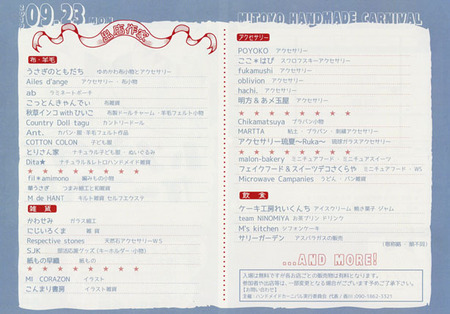 09.23 MON
出店作家
布・羊毛
うさぎのともだち ゆめかわ布小物とアクセサリー
Ailes d'ange アクセサリー・布小物
ab ラミネートポーチ
こっとんきゃんでぃ 布雑貨
秋草インコwithひいこ 布製ドールチャーム・羊毛フェルト小物
Country Doll tagu カントリードール
Ant. カバン・服・羊毛フェルト作品
COTTON COLON 子ども服
とりさん家 ナチュラル子ども服・ぬいぐるみ
Dita★ ナチュラル&レトロハンドメイド雑貨
★ ★ ★ ★ ★ ★ ★
fil*amimono 編みもの小物
華うさぎ つまみ細工と和雑貨
M de HANT キルト雑貨 セルフエウステ
雑貨
かわせみ ガラス細工
にじいろくま 雑貨
Respective stones 天然石アクセサリーWS
SJK 部活応援グッズ(キーホルダー・小物)
紙もの早織 紙もの
★ ★ ★ ★ ★ ★ ★
MI CORAZON イラスト
こんまり書房 イラスト雑貨
MITOYO HANDMADE CARNIVAL
アクセサリー
POYOKO アクセサリー
ここ*はぴ スワロフスキーアクセサリー
fukamushi アクセサリー
oblivion アクセサリー
hachi. アクセサリー
明方&あメ玉屋 アクセサリー
★ ★ ★ ★ ★ ★ ★
Chikamatsuya プラバン小物
MARTTA 粘土・プラバン・刺繍アクセサリー
アクセサリー琉夏~Ruka~ 琉球ガラスアクセサリー
★ ★ ★ ★ ★ ★ ★
malon-bakery ミニチュアフード・ミニチュアスイーツ
フェイクフード&スイーツデコさくらや ミニチュアフード・WS
Microwave Campanies うどん・パン雑貨
飲食
ケーキ工房れいくんち アイスクリーム 焼き菓子 ジャム
team NINOMIYA お茶プリン ドリンク
M's kitchen シフォンケーキ
サリーガーデン アスパラガスの販売
(敬称略・順不同)
...AND MORE!
入場は無料ですが各お店ごとの販売物は有料となります。
参加者や出店等は、一部変更となる場合がございます予めご了承下さい。
【お問い合わせ】
主催:ハンドメイドカーニバル実行委員会 代表/香川:090-1862-3321